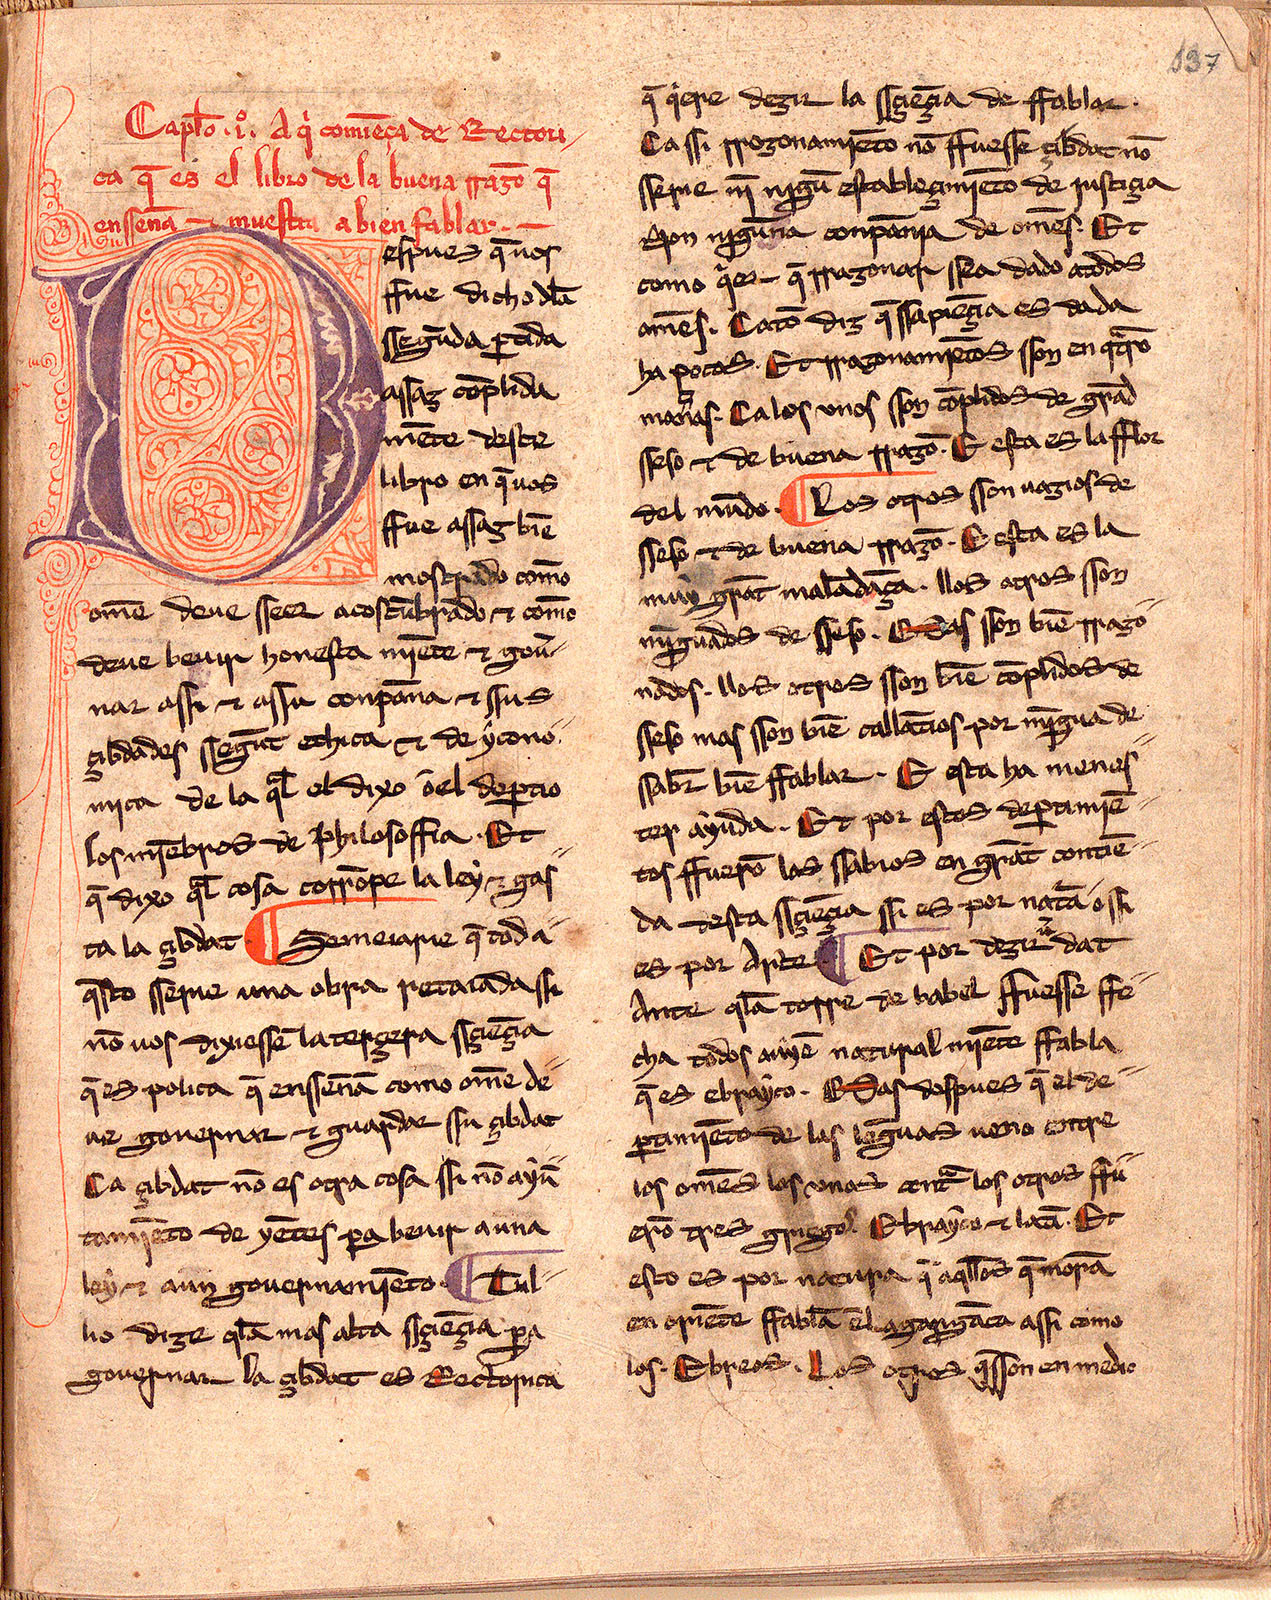 137
Capľo .iº. Aq̇ comiẽça de Rectori-
ca q̃ es el libro de la buena rrazõ q̃
ensseña ⁊ muestra a bien fablar.
Despues q̃ uos
ffue dicho ẽ la
ssegũda ꝑtida
assaz cõplida
mẽte deste
libro en q̃ uos
ffue assaz biẽ
mostrado como
om̃e deue sseer acostũbrado ⁊ como
deue beuir honesta miẽte ⁊ gou̾-
nar assi ⁊ assu conpãna ⁊ ssus
çibdades ssegũt ethica ⁊ de ẏcono-
mica de la q̃l el dixo õ el deꝑtio
los miẽbros de philosoffia. Et
q̃ dixo q̃l cosa corrõpe la leẏ ⁊ gas-
ta la çibdat ¶ Semeiarie q̃ tod a-
q̃sto sserie una obra retaiada ssi
nõ uos dixiessẽ la terçera ssçiẽçia
q̃ es polica q̃ enssenã como om̃e de-
ue gouernar ⁊ guardar ssu çibdat
Ca çibdat nõ es otra cosa ssi nõ aẏũ-
tamiẽto de yẽtes ꝑa beuir a una
leẏ ⁊ a un gouernamiẽto. ¶ Tul-
lio dize q̃ la mas alta ssçiẽçia ꝑa
gouernar la çibdat es Rectorica
q̃ q̇ere dezir la ssçiẽçia de ffablar.
Ca ssi rrazonamiẽto nõ ffuesse çibdat nõ
sserie ni nigũ establecimiẽto de iustiçia
Non nigũna conpãnia de om̃es. Et
como q̇er q̃ rrazonar ssea dado atodos
om̃es. Catõ diz q̃ ssapiẽçia es dada
ha pocos. Et rrazonamiẽtos sson en q̃tro
mañas. Ca los unos sson cõplidos de grãd
sseso ⁊ de buena rrazõ. E esta es la fflor
del mũdo. ¶ Los otros sson uazios de
sseso ⁊ de buena rrazõ. E esta es la
muẏ grãt malãdãça. llos otros sson
mĩguados de sseso. Mas sson biẽ rrazo-
nados. llos otros sson biẽ cõplidos de
sseso mas sson biẽ callãtios por mĩgua de
ssabr̃ biẽ ffablar. E esta ha menes-
ter aẏuda. Et por estos deꝑtimiẽ-
tos ffuerõ los ssabios en grãt contiẽ-
da desta ssçiẽçia ssi es por nat̃a o ssi
es por Arte ¶ Et por dezir ũdat
Ante q̃ la torre de babel ffuesse ffe-
cha todos auyẽ natural miẽte ffabla
q̃ es ebraẏco. Mas despues q̃ el de-
ꝑtimiẽto de las lẽguas ueno entre
los om̃es los unos cont̃ los otros ffu-
erõ tres griego. Ebraẏco ⁊ latĩ. Et
esto es por natura q̃ aq̃llos q̃ morã
en oriẽte ffablã ẽ la gargãta assi como
los. Ebreos. Los otros q̃ sson en medio